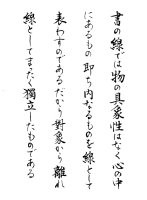 書の線では物の具象性はなく心の中
にあるもの即ち内なるものを線として
表わすのであるだから對象から離れ
線としてまったく獨立したものである